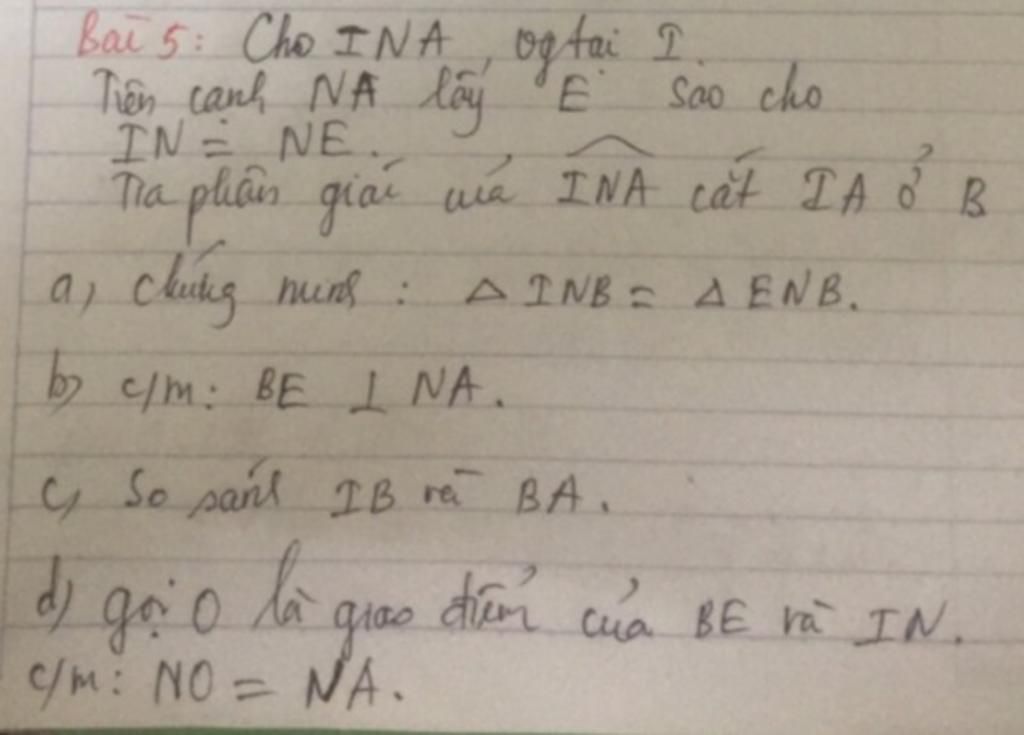 Bài 5: Cho INA, vg tại I.
Trên cạnh NA lấy E sao cho
IN = NE.
Tia phân giác của INA cắt IA ở B
a, Chứng minh : △ INB = △ ENB.
b) c/m: BE ⊥ NA.
c, So sánh IB và BA.
d) gọi O là giao điểm của BE và IN.
c/m: NO = NA.